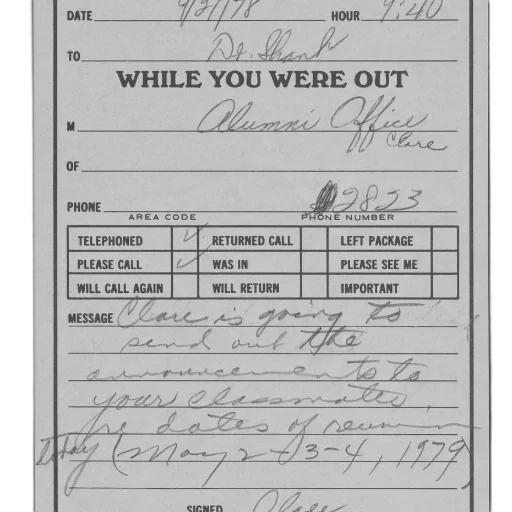 DATE 9/21/78 HOUR 9:40
TO Dr. Shank
WHILE YOU WERE OUT
M Alumni Office
Clare
OF
PHONE 2823
AREA CODE PHONE NUMBER
TELEPHONED ✓ RETURNED CALL LEFT PACKAGE
PLEASE CALL ✓ WAS IN PLEASE SEE ME
WILL CALL AGAIN WILL RETURN IMPORTANT
MESSAGE Clare is going to
send out the
announcements to
your classmates,
re dates of reunion
today (May 2-3-4, 1979)
SIGNED